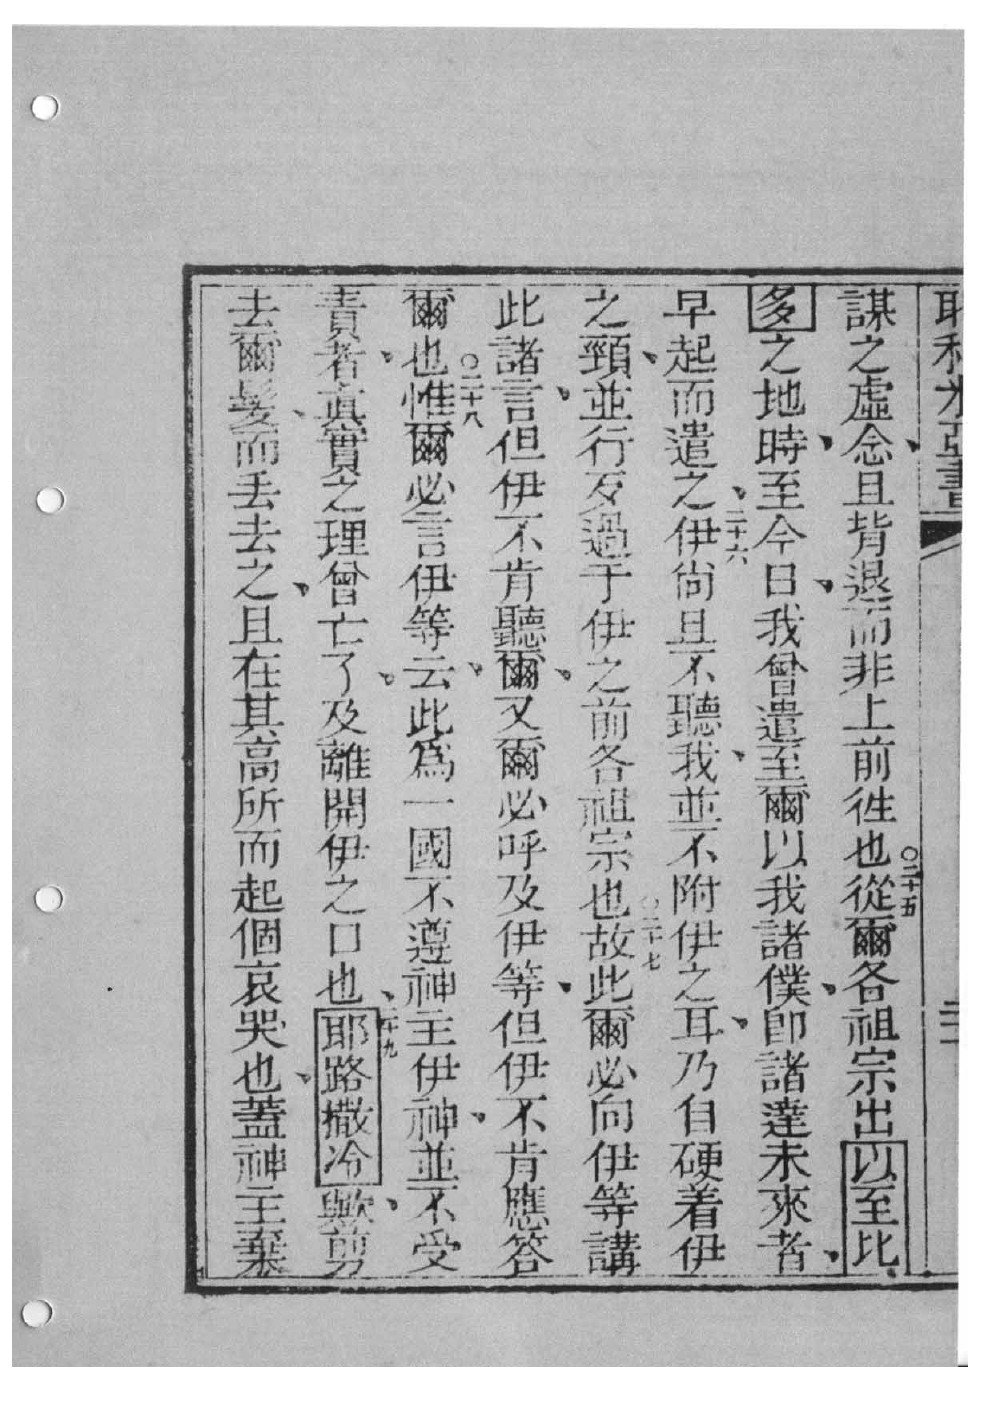 耶利米亞書
謀之虛念、且背退而非上前徃也○二十五從爾各祖宗出以至比
多之地時、至今日、我曾遣至爾以我諸僕、卽諸達未來者、
早起而遣之、二十六伊尙且不聽我、並不附伊之耳、乃自硬着伊
之頸、並行歹過于伊之前各祖宗也○二十七故此爾必向伊等講
此諸言、但伊不肯聽爾、又爾必呼及伊等、但伊不肯應答
爾也○二十八惟爾必言伊等云、此爲一國不遵神主伊神、並不受
責者、眞實之理曾亡了、及離開伊之口也、二十九耶路撒冷歟、剪
去爾髮、而丢去之、且在其高所而起個哀哭也、蓋神主棄